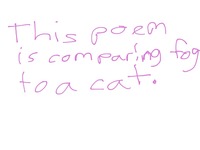 This poem
is comparing fog
to a cat.